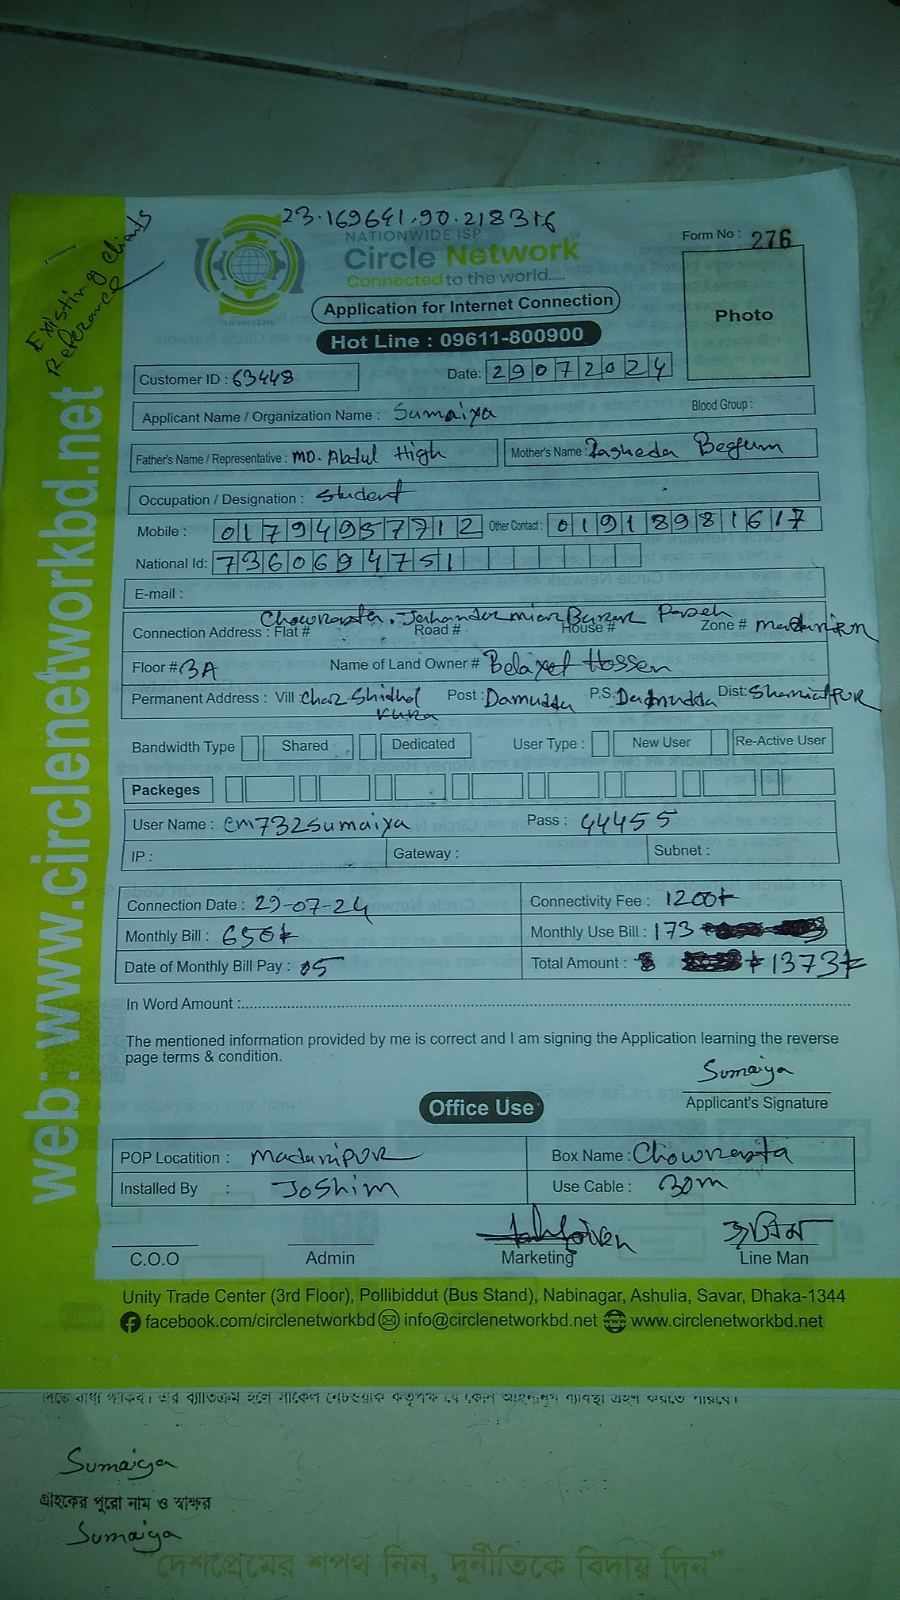 23.169641.90.218316
Existing clients
Referance
NATIONWIDE ISP
Circle Network
Connected to the world.....
ISO 9001:2015
Form No : 276
Photo
Application for Internet Connection
Hot Line : 09611-800900
Customer ID : 63448
Date: 29072024
Applicant Name / Organization Name : Sumaiya
Blood Group :
Father's Name / Representative : MD. Abdul High
Mother's Name : Rasheda Begum
Occupation / Designation : Student
Mobile : 01794957712 Other Contact : 01918981617
National Id: 7360694751
E-mail :
Chowrasta,
Connection Address : Flat # Road # House # Zone # Madaripur
Floor # 3A Name of Land Owner # Belayet Hossen
Permanent Address : Vill Char Shidhol Post : Damudda P.S. Damudda Dist: Shariatpur
kura
Bandwidth Type Shared Dedicated User Type : New User Re-Active User
Packeges
User Name : cm732sumaiya Pass : 44455
IP : Gateway : Subnet :
Connection Date : 29-07-24 Connectivity Fee : 1200t
Monthly Bill : 650t Monthly Use Bill : 173
Date of Monthly Bill Pay : 05 Total Amount : 1373t
In Word Amount :
The mentioned information provided by me is correct and I am signing the Application learning the reverse
page terms & condition.
Sumaiya
Applicant's Signature
Office Use
POP Locatition : Madaripur Box Name : Chowrasta
Installed By : Joshim Use Cable : 30m
জসিম
C.O.O Admin Marketing Line Man
Unity Trade Center (3rd Floor), Pollibiddut (Bus Stand), Nabinagar, Ashulia, Savar, Dhaka-1344
facebook.com/circlenetworkbd info@circlenetworkbd.net www.circlenetworkbd.net
web: www.circlenetworkbd.net
Sumaiya
গ্রাহকের পুরো নাম ও স্বাক্ষর
Sumaiya
“দেশপ্রেমের শপথ নিন, দুর্নীতিকে বিদায় দিন”